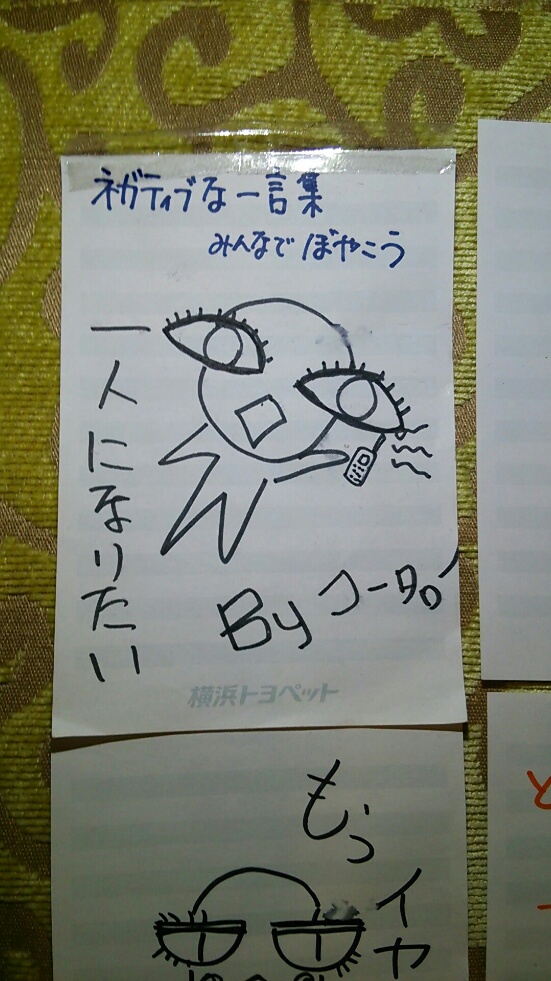 ネガティブな一言集
みんなで ぼやこう
一人になりたい
By コータロー
横浜トヨペット
もう
イヤ